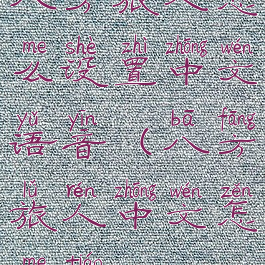 me shè zhì zhōng wén
么设置中文
yǔ yīn bā fāng
语音(八方
lǚ rén zhōng wén zěn
旅人中文怎
me